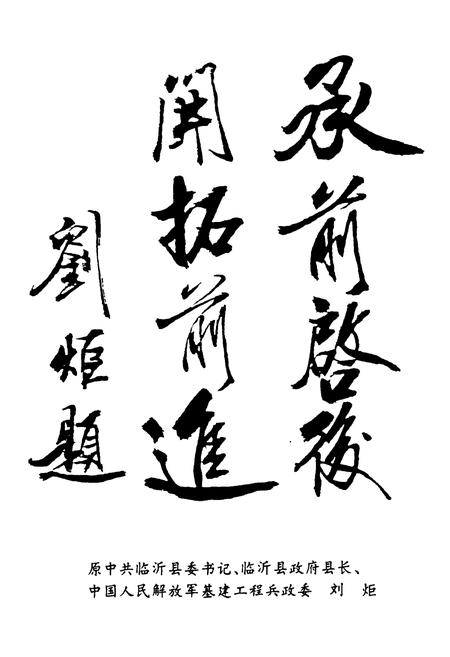 承前啓後
開拓前進
劉炬題
原中共临沂县委书记、临沂县政府县长、
中国人民解放军基建工程兵政委 刘 炬